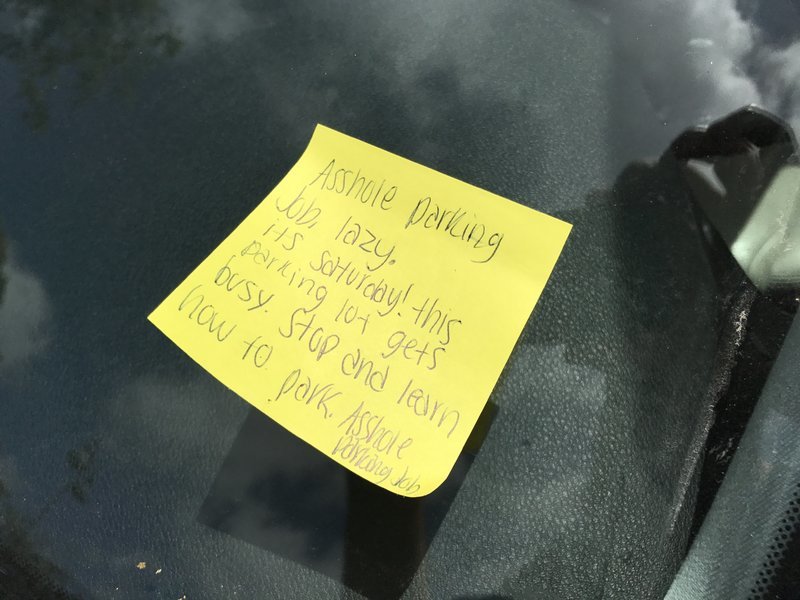 Asshole parking
Job, lazy.
its saturday! this
parking lot gets
busy. Stop and learn
how to park. Asshole
parking Job